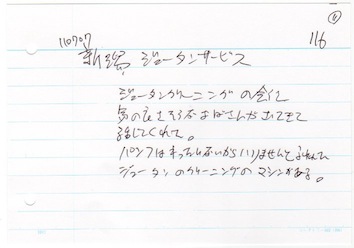 ⑪
116
110707
新宿 ジュータンサービス
ジュータンクリーニングの会社
気の良さそうなおばさんが出てきて
話してくれて。
パンフはまったくないからいりませんと
ジュータンのクリーニングのマシンがある。